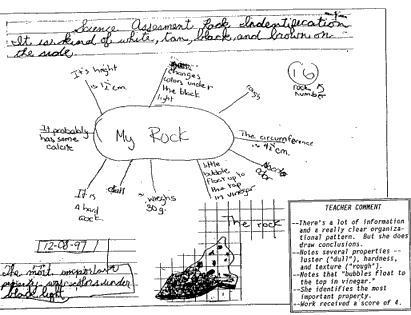 Science Assesment Rock Indentification
It is kind of white, tan, black, and brown on
the side.
It's hight
is 1½ cm.
changes
colors under
the black
light
16
rock is
number
It probably
has some
calcite
My Rock
The circumference
is 4½ cm.
It is
A hard
rock.
dull
weighs
30 g.
little
bubble
float up to
the top
in vinegar
The rock
12-08-97
The most important
property was colors under
black light
TEACHER COMMENT
--There's a lot of information
and a really clear organiza-
tional pattern. But she does
draw conclusions.
--Notes several properties --
luster ("dull"), hardness,
and texture ("rough").
--Notes that "bubbles float to
the top in vinegar."
--She identifies the most
important property.
--Work received a score of 4.